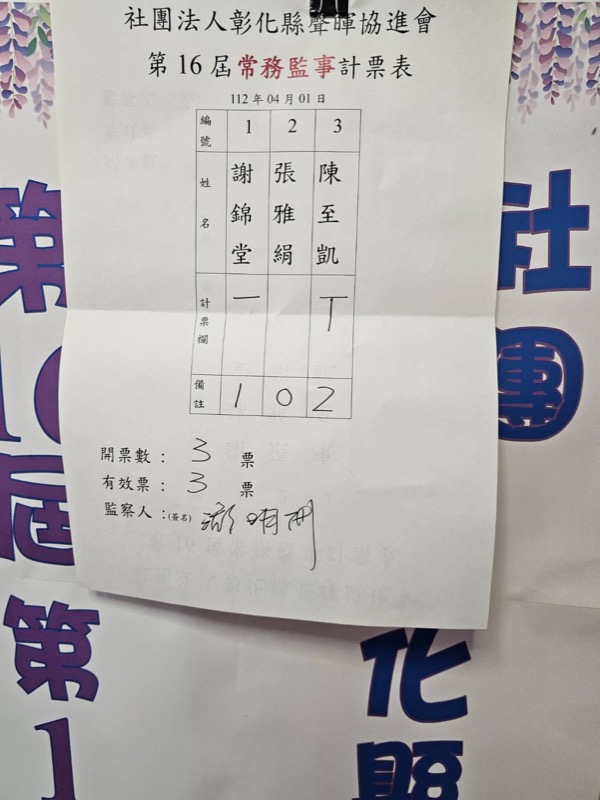 社團法人彰化縣聲暉協進會
第16屆常務監事計票表
112年04月01日
編號 1 2 3
姓名 謝錦堂 張雅絹 陳至凱
計票欄 一 丅
備註 1 0 2
開票數： 3 票
有效票： 3 票
監察人：(簽名)
社團
化縣
第16屆第1